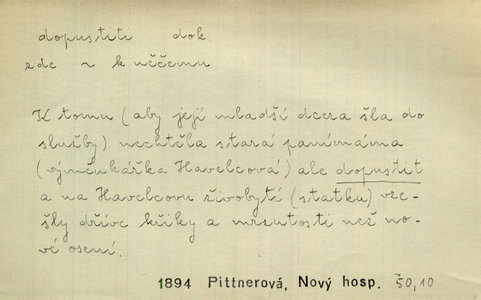 dopustiti dok.
zde ~ k něčemu
K tomu (aby její mladší dcera šla do
služby) nechtěla stará panímáma
(výměnkářka Havelcová) ale dopustit
a na Havelcovu živobytí (statku) vze-
šly dříve křiky a mrzutosti než no-
vé osení.
1894 Pittnerová, Nový hosp. 50,10